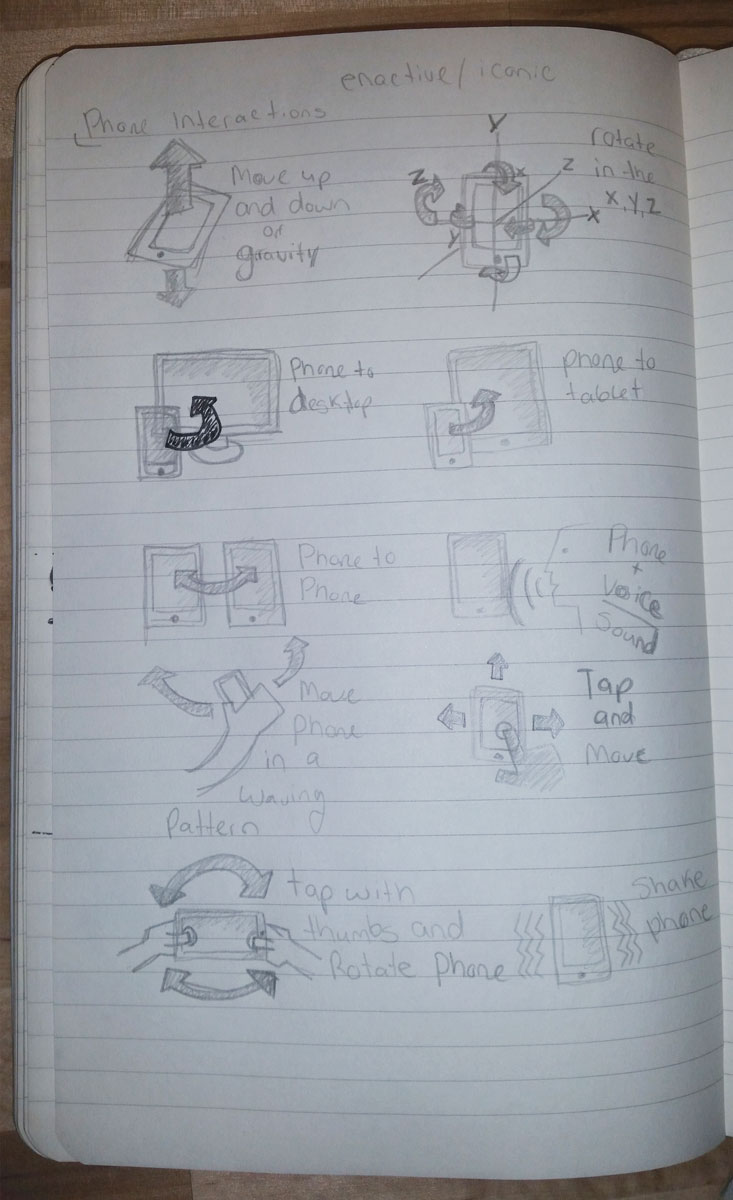 enactive/iconic
Phone Interactions
Move up
and down
or
gravity
Y
Z
Z
X
X
Y
rotate
in the
X, Y, Z
Phone to
desktop
phone to
tablet
Phone to
Phone
Phone
+
Voice
Sound
Move
phone
in a
waving
Pattern
Tap
and
Move
tap with
thumbs and
Rotate Phone
Shake
phone